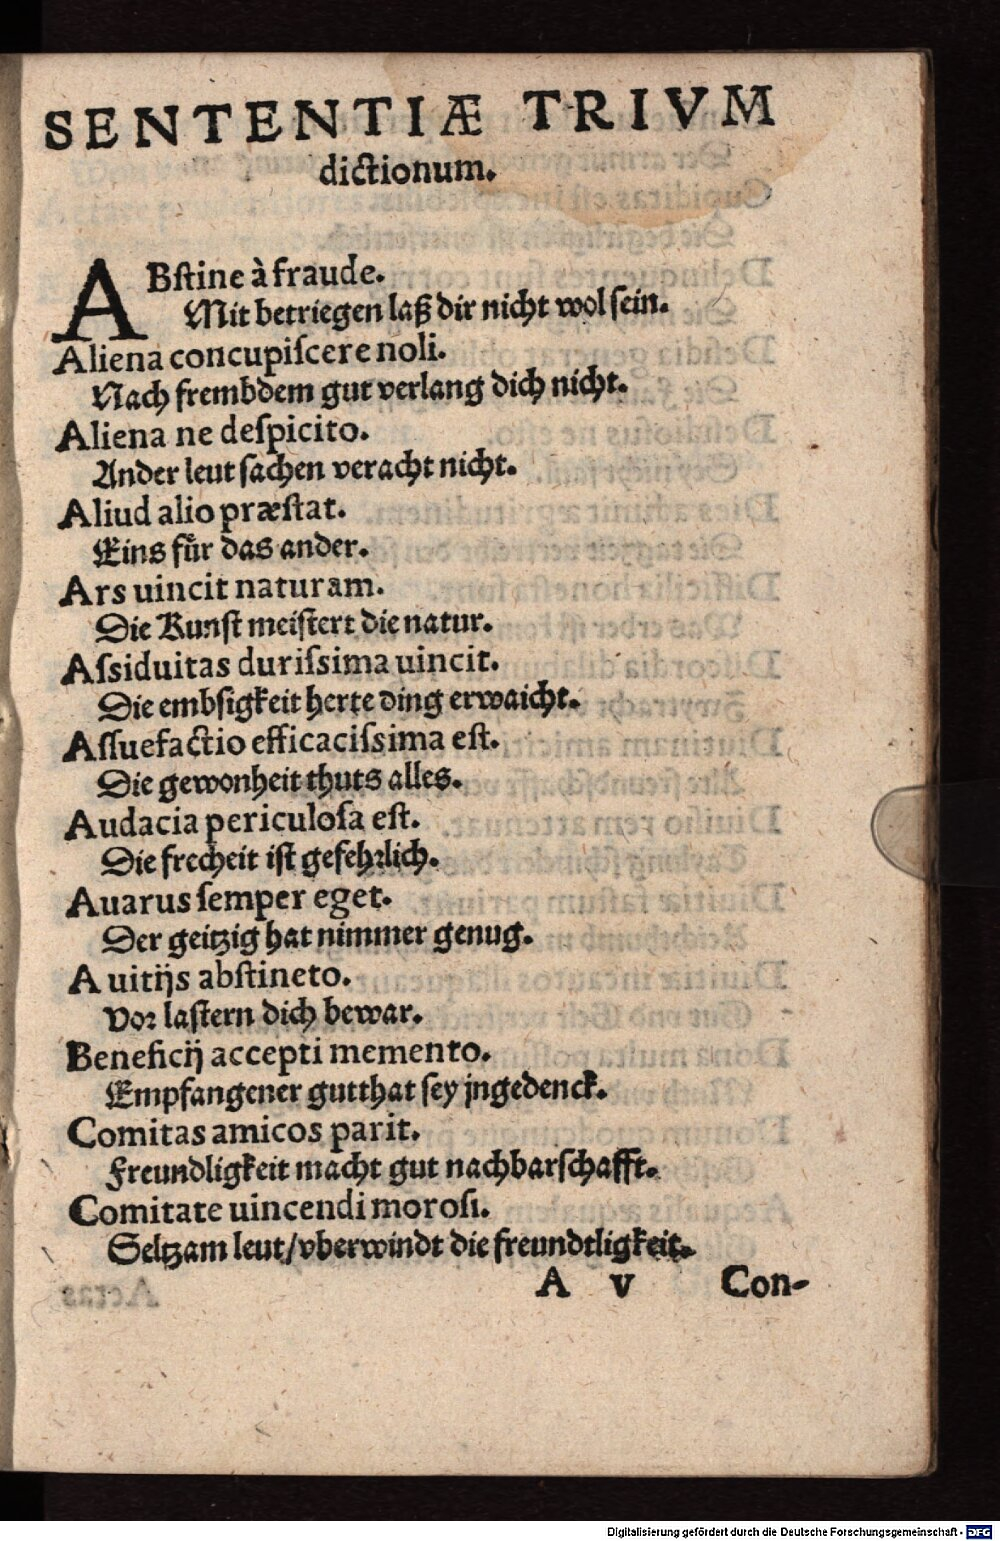 SENTENTIÆ TRIVM
dictionum.
ABſtine à fraude.
Mit betriegen laß dir nicht wol ſein.
Aliena concupiſcere noli.
Nach frembdem gut verlang dich nicht.
Aliena ne deſpicito.
Ander leut ſachen veracht nicht.
Aliud alio præſtat.
Eins fuͤr das ander.
Ars uincit naturam.
Die Kunſt meiſtert die natur.
Aſsiduitas duriſsima uincit.
Die embſigkeit herte ding erwaicht.
Aſſuefactio efficaciſsima eſt.
Die gewonheit thuts alles.
Audacia periculoſa eſt.
Die frecheit iſt gefehꝛlich.
Auarus ſemper eget.
Der geitzig hat nimmer genug.
A uitijs abſtineto.
Voꝛ laſtern dich bewar.
Beneficij accepti memento.
Empfangener gutthat ſey jngedenck.
Comitas amicos parit.
Freundligkeit macht gut nachbarſchafft.
Comitate uincendi moroſi.
Seltzam leut/vberwindt die freundtligkeit.
A v Con-
Digitalisierung gefördert durch die Deutsche Forschungsgemeinschaft - DFG